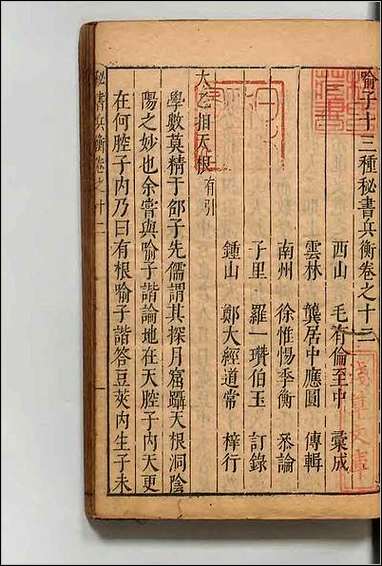 喻子十三種秘書兵衡卷之十三
西山 毛有倫至中 彙成
雲林 龔居中應圓 傳輯
南州 徐惟惕季衡 叅論
子里 羅一瓚伯玉 訂錄
鍾山 鄭大經道常 梓行
大乙相天根 有引
學數莫精于邵子先儒謂其探月窟躡天根洞陰
陽之妙也余嘗與喻子諧論地在天腔子內天更
在何腔子內乃曰有根喻子諧答豆莢內生子未
秘書兵衡卷之十二